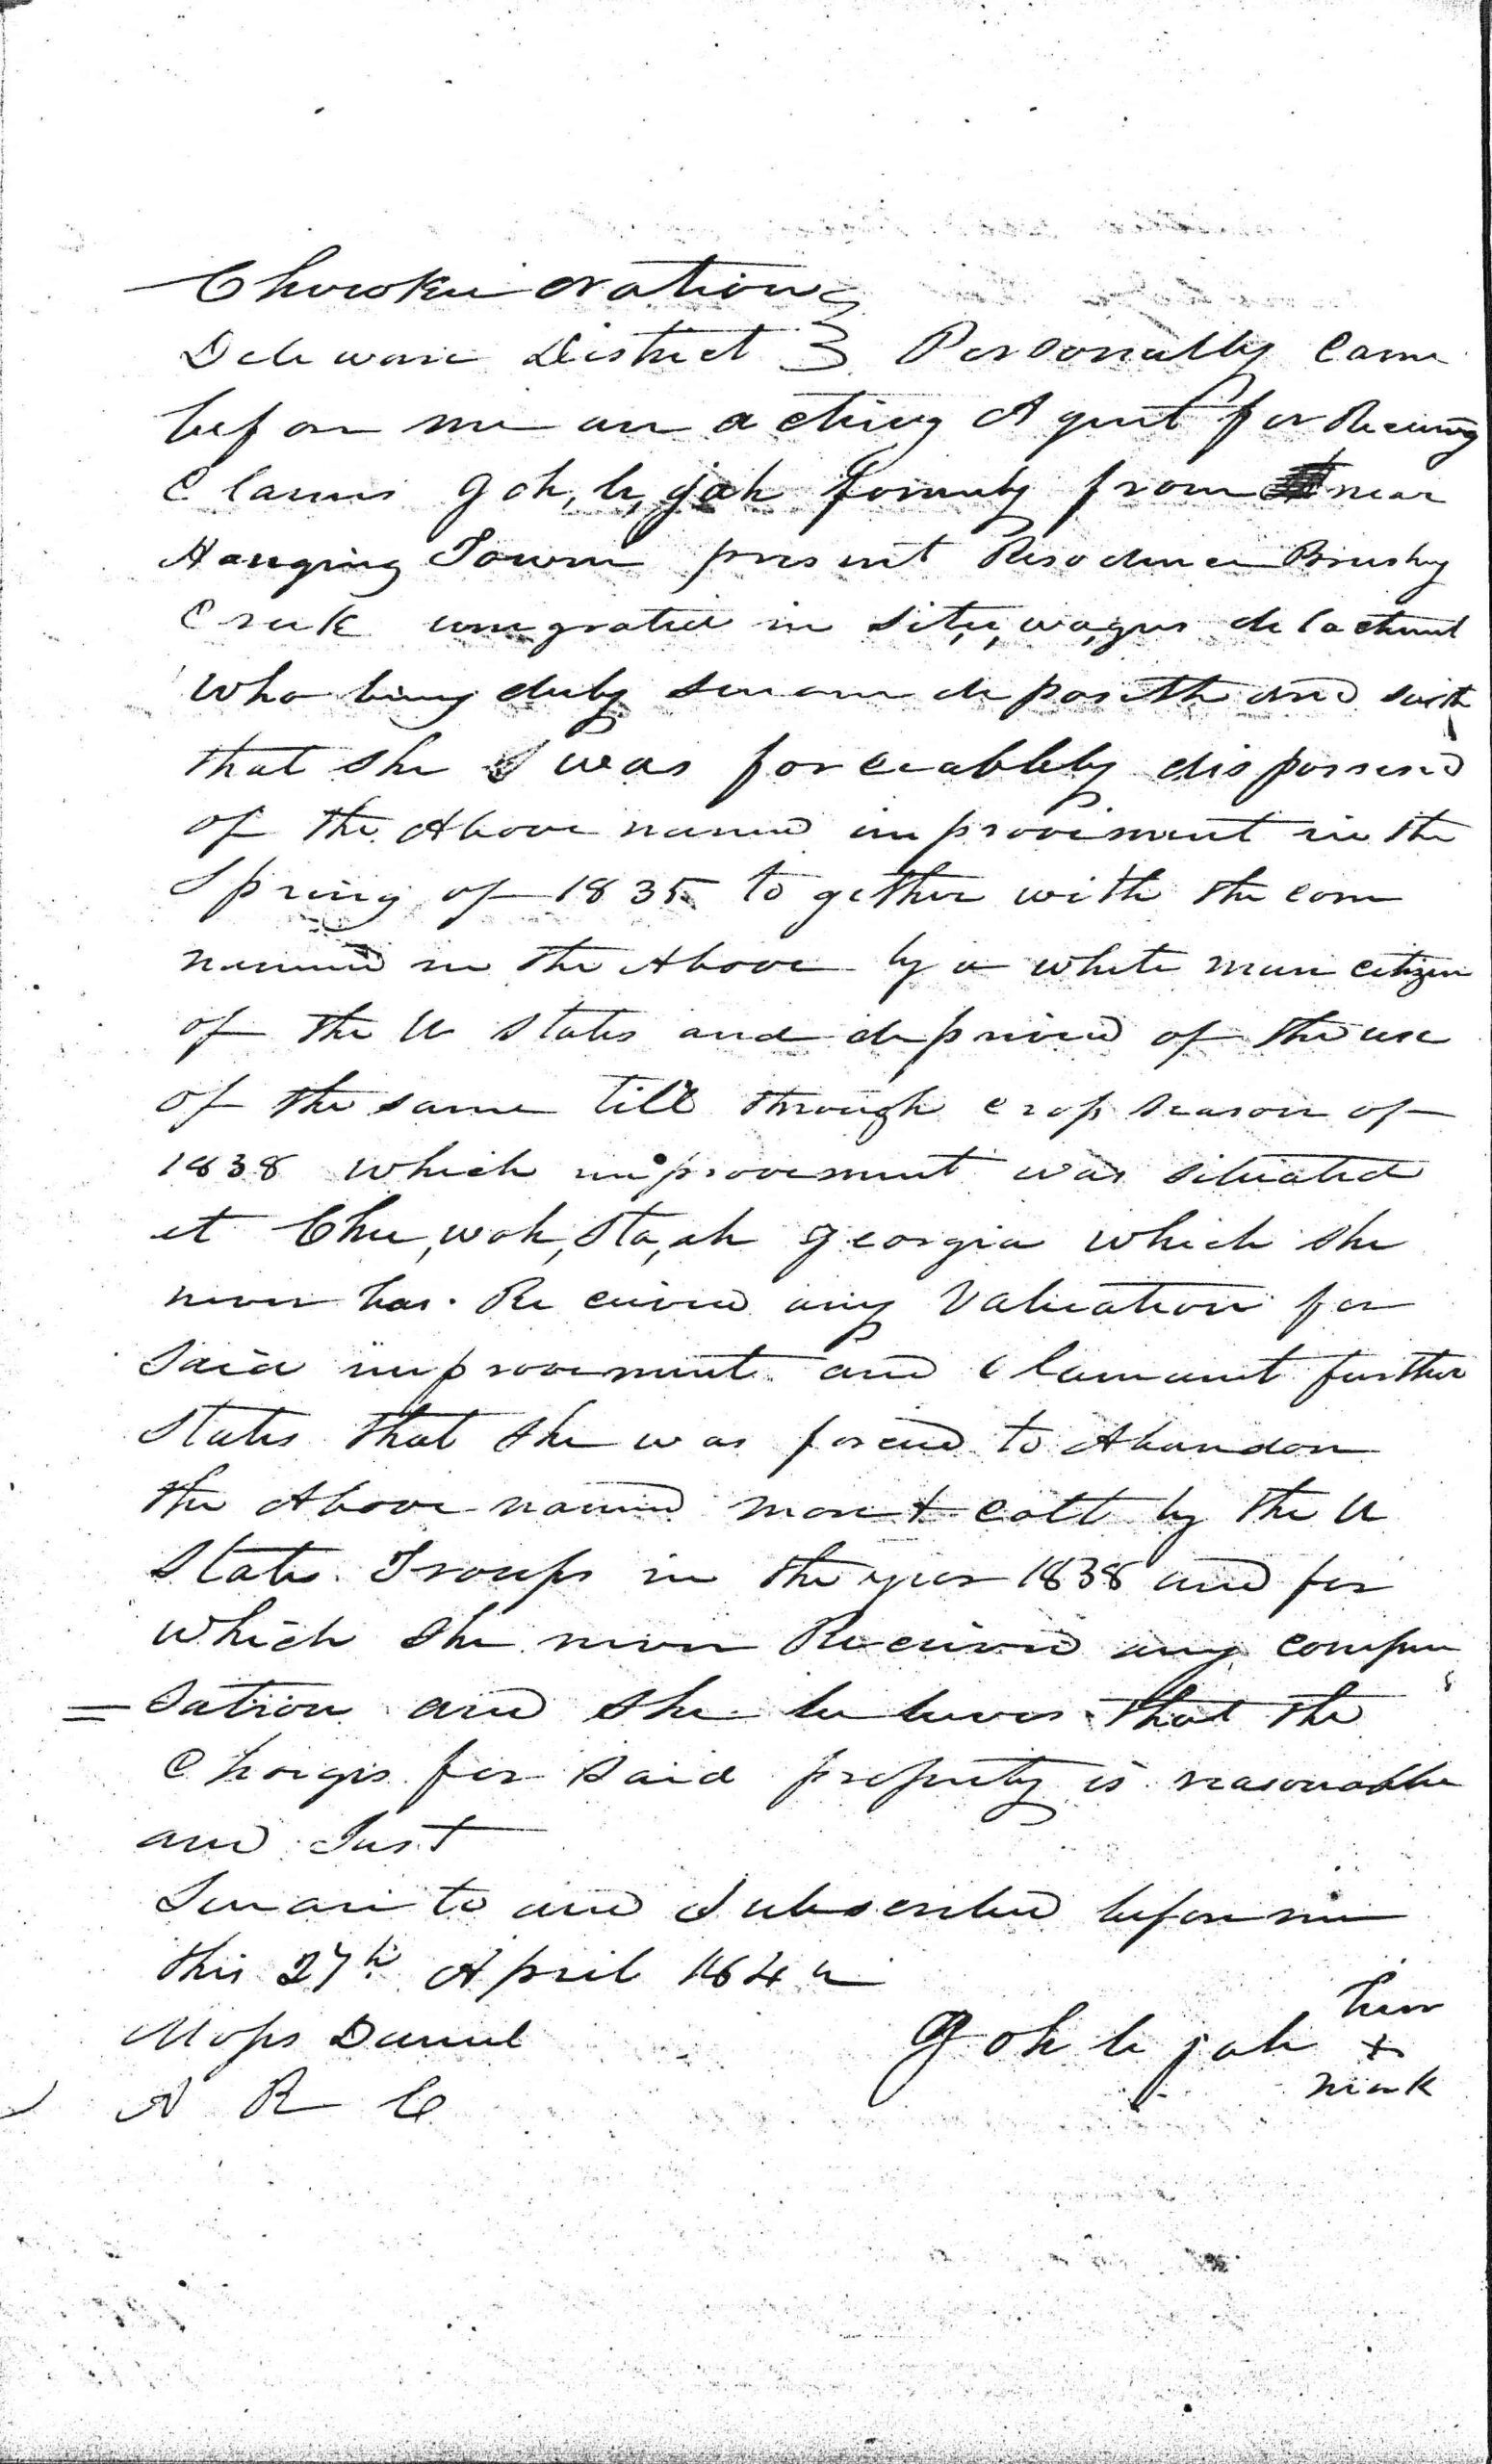 Cherokee Nation
Deleware District } Personally Came
before me an acting Agent for Receiving
Claims Goh,le,jah formerly from near
Hanging Town present Residence Brushy
Creek emegrated in Situ,wa,gus detactment
Who being duly sworn deposeth and saith
that she was forceablely dispossesed
of the Above named improvement in the
Spring of 1835 to gether with the corn
named in the Above by a white man citizen
of the U States and deprived of the use
of the same till through crop season of
1838 which improvement was situated
at Chu,woh,sta,ah Georgia which she
never has Received any Valuation for
Said improvement and Clamant further
States that she was forced to Abandon
the Above named mare & colt by the U
States Troops in the year 1838 and for
which she never Received any compen
=sation and she believes that the
Charges for said property is reasonable
and Just
Sworn to and Subscribed before me
this 27th April 1842
Moses Daniel Goh le jah her
A R C x
mark